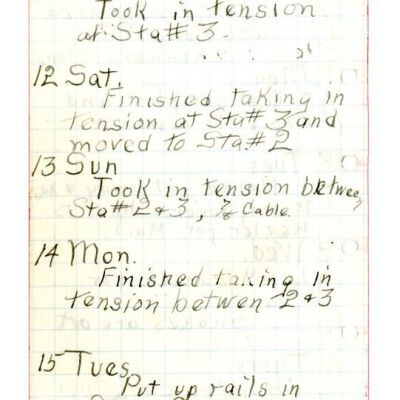 Took in tension
at Sta# 3.
12 Sat.
Finished taking in
tension at Sta# 3 and
moved to Sta# 2
13 Sun
Took in tension between
Sta# 2 & 3, 7/8 Cable.
14 Mon.
Finished taking in
tension betwen 2 & 3
15 Tues
Put up rails in